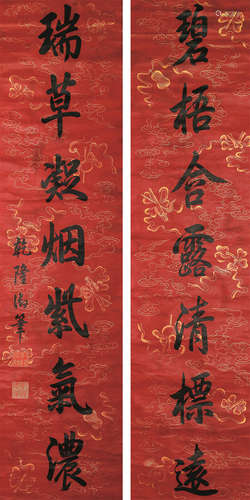 碧梧含露清標遠
瑞草凝烟紫氣濃
乾隆御筆